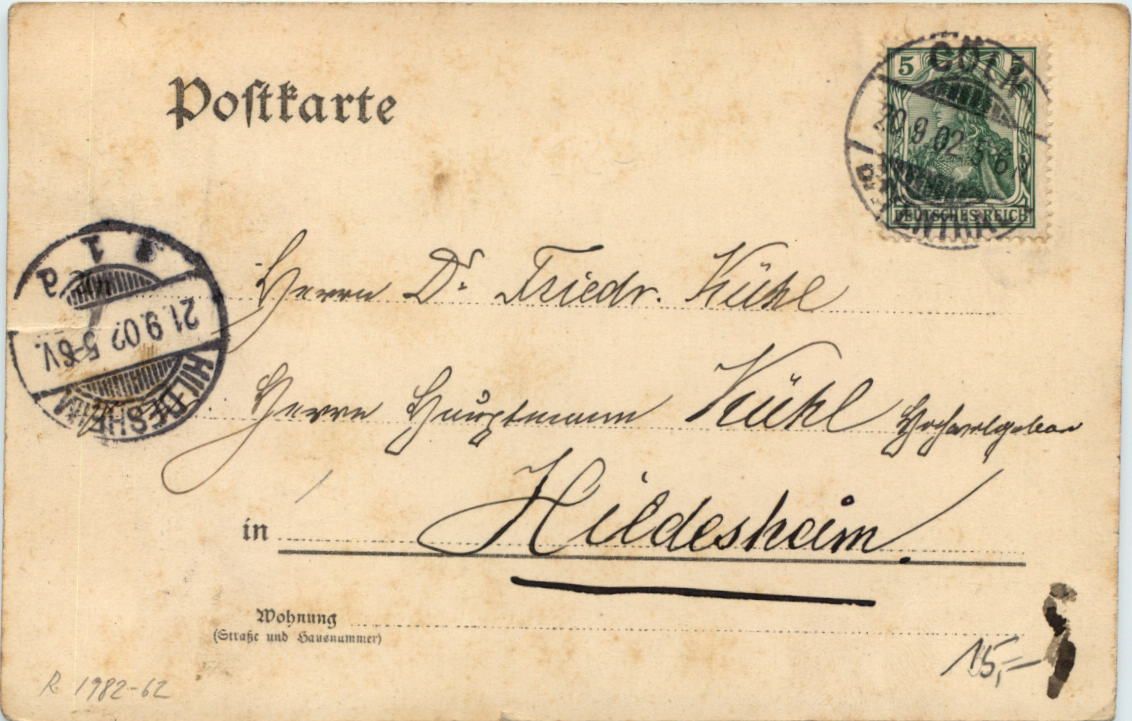 Postkarte
5 5
CÖLN
20.9.02 5-6N
DEUTSCHES REICH
1
21.9.02 5-6V.
HILDESHEIM
Herrn Dr. Friedr. Kühl
Herrn Hauptmann Kühl Hochwolgeboren
in Hildesheim.
Wohnung
(Straße und Hausnummer)
15,–
R 1982-62